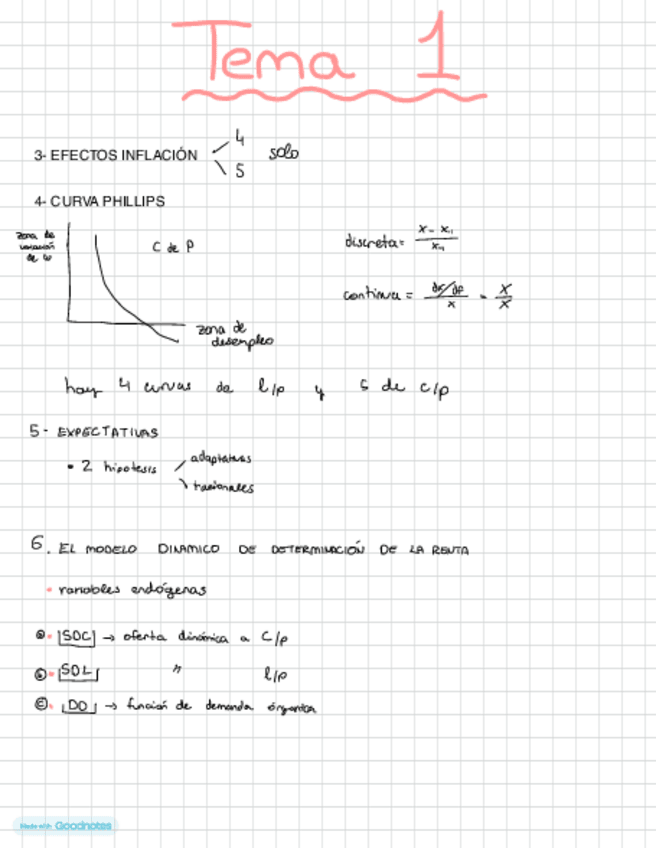 Tema 1
4
3- EFECTOS INFLACIÓN solo
5
4- CURVA PHILLIPS
zona de
variación
de w
C de P
discreta =
continua =
zona de
desempleo
hay 4 curvas de l/p y 5 de c/p
5- EXPECTATIVAS
• 2 hipótesis
adaptativas
racionales
6. EL MODELO DINAMICO DE DETERMINACIÓN DE LA RENTA
• variables endógenas
SOC → oferta dinámica a C/p
SOL " l/p
DD → función de demanda
Made with Goodnotes